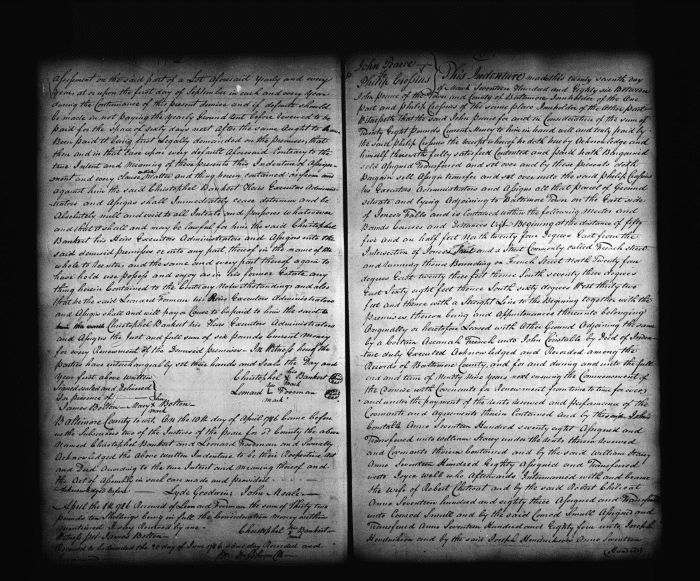 Assessment on the said part of a Lot aforesaid Yearly and every
year at or upon the first day of September in each and every year
during the Continuance of this present demise and if default should
be made in not paying the yearly Ground Rent before reserved to be
paid for the space of sixty days next after the same ought to have
Been paid it being first Legally demanded on the premises that
then and in that Case upon such default aforesaid Contrary to the
true Intent and Meaning of these presents this Indenture of Assign-
ment and every clause Matter and thing herein contained as from and
against him the said Christophel Bankert Heirs Executors Adminis-
trators and Assigns shall Immediately cease determine and be
Absolutely null and void to all Intents and purposes whatsoever
and that it shall and may be lawful for him the said Christophel
Bankert his Heirs Executors Administrators and Assigns into the
said demised premises or into any part thereof in the name of the
whole to Reenter and the same and every part thereof again to
have hold use possess and enjoy as in his former Estate any
thing herein Contained to the Contrary Notwithstanding and also
that he the said Leonard Foreman his Heirs Executors Administrators
and Assigns shall and will pay or Cause to be paid to him the said
Christophel Bankert his Heirs Executors Administrators
and Assigns the Just and full sum of six pounds Current money
for every Assessment of the Demised premises In Witness hereof the
parties have interchangeably set their hands and Seals the Day and
Year first above written
Christophel his mark Bankert
Signed sealed and Delivered
In presence of
Lenard his mark Foreman
James Bolton Mary Bolton
mark
Baltimore County to wit On the 10th day of April 1786 Came before
us the Subscribers two of the Justices of the peace for said County the above
Named Christophel Bankert and Leonard Foreman and Severally
Acknowledged the above written Indenture to be their Respective Act
and Deed According to the true Intent and Meaning thereof and
the Act of Assembly in such case made and provided
Acknowledged before Lyde Goodwin John Moale
April the 1st 1786 Received of Leonard Foreman the sum of thirty two
pounds ten Shillings being in full the Consideration Money within
Mentioned I say Received by me
Witness Jas James Bolton Christophel his Bankert
Received to be Recorded the 20 day of June 1786 same day Recorded and
John Pearce
to
Philip Crosius
This Indenture made this twenty seventh day
of March Seventeen Hundred and Eighty six Between
John Pearce of the Town and County of Baltimore Innholder of the One
Part and Philip Crosius of the same place Innholder of the Other part
Witnesseth that the said John Pearce for and in Consideration of the sum of
Twenty Eight pounds Current Money to him in hand well and truly paid by
the said Philip Crosius the receipt whereof he doth hereby Acknowledge and
himself therewith fully satisfied Contented and paid hath Bargained
sold Assigned Transfered and set over and by these presents doth
Bargain sell Assign transfer and set over unto the said Philip Crosius
his Executors Administrators and Assigns all that parcel of Ground
situate and lying Adjoining to Baltimore Town on the East side
of Joneses Falls and is Contained within the following Metes and
Bounds Courses and Distances Vizt Beginning at the distance of fifty
five and an half feet North twenty four degrees East from the
Intersection of Street and a Street Commonly Called French Street
and running thence Bounding on French Street North Twenty four
degrees East twenty three feet thence South seventy three degrees
East Sixty eight feet thence South sixty degrees West thirty two
feet and thence with a Straight Line to the Beginning together with the
premises thereon being and Appurtenances thereunto belonging
Originally or heretofore Leased with Other Ground Adjoining the same
by a Certain French unto John Constable by Deed of Inden-
ture duly Executed Acknowledged and Recorded among the
Records of Baltimore County, and for and during and unto the full
end and term of Ninety Nine years next ensuing the Commencement of
the Demise with Covenants for Renewment from time to time for ever
and under the payment of the Rents reserved and performance of the
Covenants and agreements therein Contained and by the said John
Constable Anno Seventeen Hundred seventy eight Assigned and
Transfered unto William Heary under the Rents therein reserved
and Covenants therein Contained and by the said William Heary
Anno Seventeen Hundred Eighty Assigned and Transferred
unto Joyce who Afterwards Intermarried with and became
the Wife of Robert Chitrest and by the said Robert Chitrest
Anno Seventeen hundred and eighty three Assigned and Transfered
unto Conrod Smull and by the said Conrod Smull Assigned and
Transfered Anno Seventeen Hundred and Eighty four unto Joseph
Hendrickson and by the said Joseph Hendrickson Anno Seventeen
Hundred